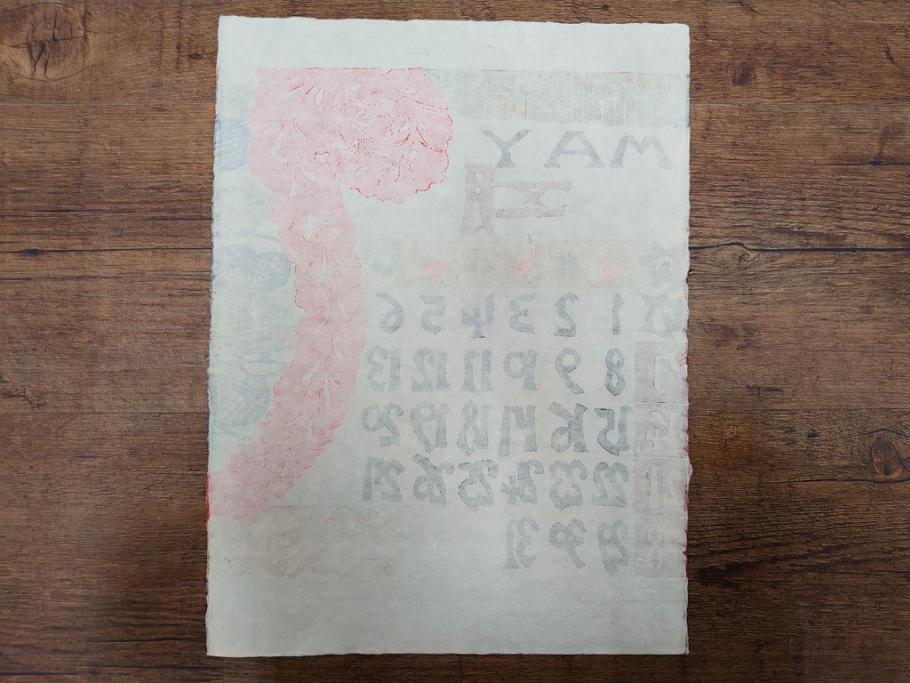 MAY
五月
1 2 3 4 5 6
7 8 9 10 11 12 13
14 15 16 17 18 19 20
21 22 23 24 25 26 27
28 29 30 31